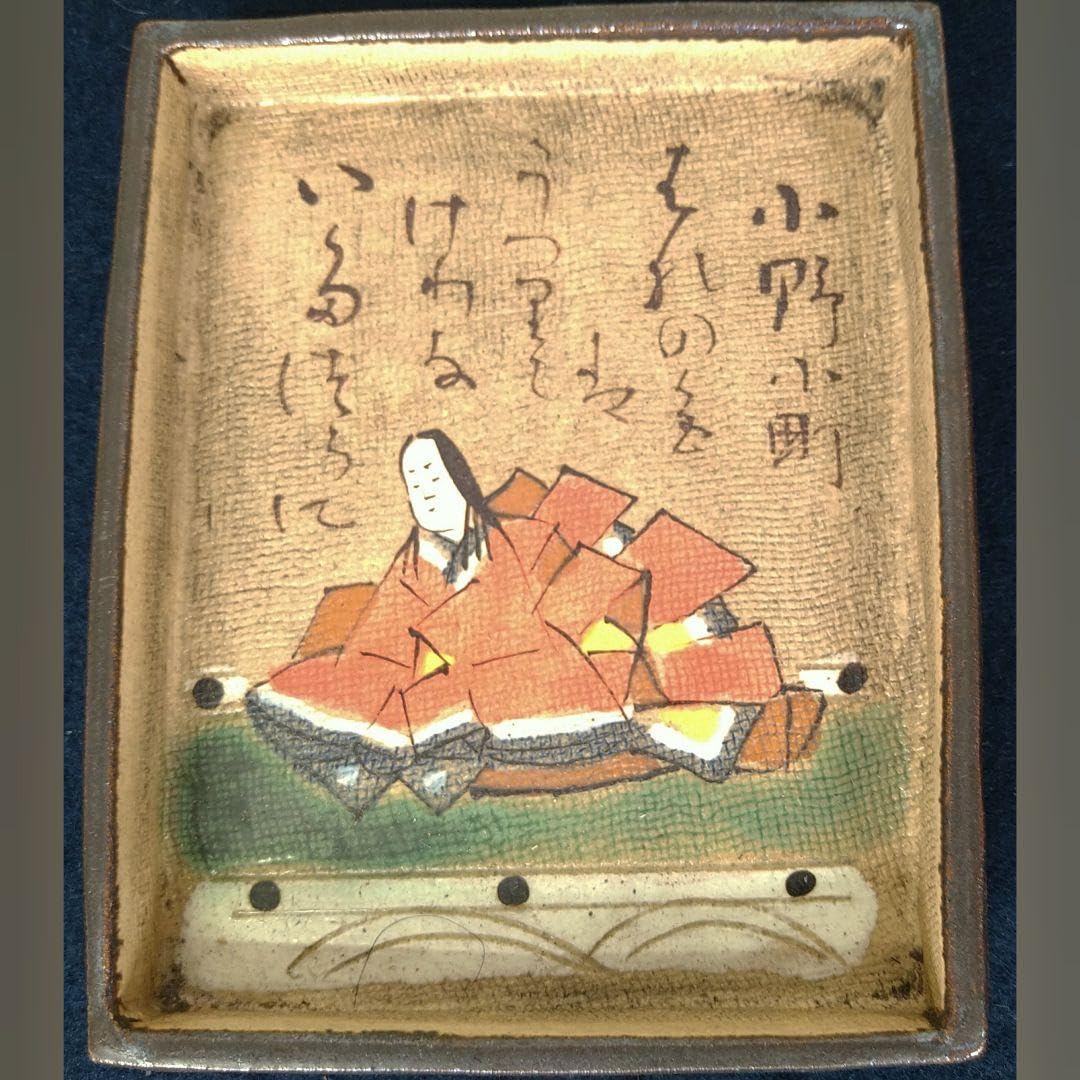 小野小町
はなの色
は
うつりに
けりな
いたつらに